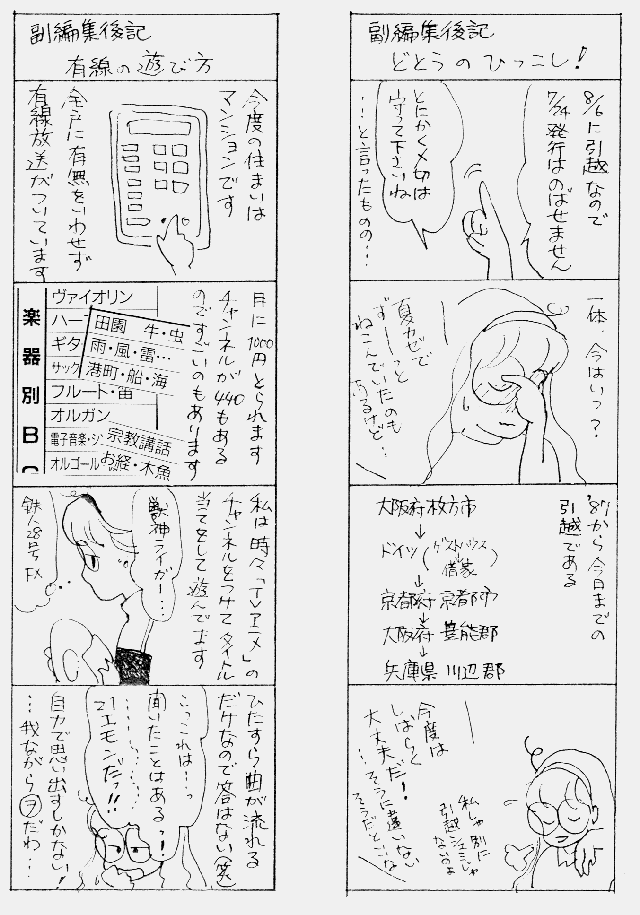 副編集後記
どとうのひっこし!
8/6に引越なので
7/24発行はのばせません
とにかく〆切は
守って下さいね
…と言ったものの…
一体、今はいつ?
夏カゼで
ずーーっと
ねこんでいたのも
あるけど…
'87から今日までの
引越である
大阪府枚方市
↓
ドイツ(ゲストハウス
↓
借家)
↓
京都府京都市
↓
大阪府 豊能郡
↓
兵庫県川辺郡
今度は
しばらく
大丈夫だ!
…そうに違いない
そうだといいな
私しゃ別に
引越ジプシーじゃ
ないのよ
副編集後記
有線の遊び方
今度の住まいは
マンションです
全戸に有無をいわせず
有線放送がついています
月に1000円とられます
チャンネルが440もある
のですごいのもあります
楽器別B
ヴァイオリン
ハー
ギタ
サック
フルート・笛
オルガン
電子音楽・シン
オルゴール
田園 牛・虫
雨・風・雷…
港町・船・海
宗教講話
お経・木魚
私は時々「TVアニメ」の
チャンネルをつけてタイトル
当てをして遊んでます
獣神ライガー…
鉄人28号FX
ひたすら曲が流れる
だけなので答はない(笑)
こっこれは…っ
聞いたことはあるっ!
………
21エモンだっ!!
自力で思い出すしかない!
…我ながらヲだわ…